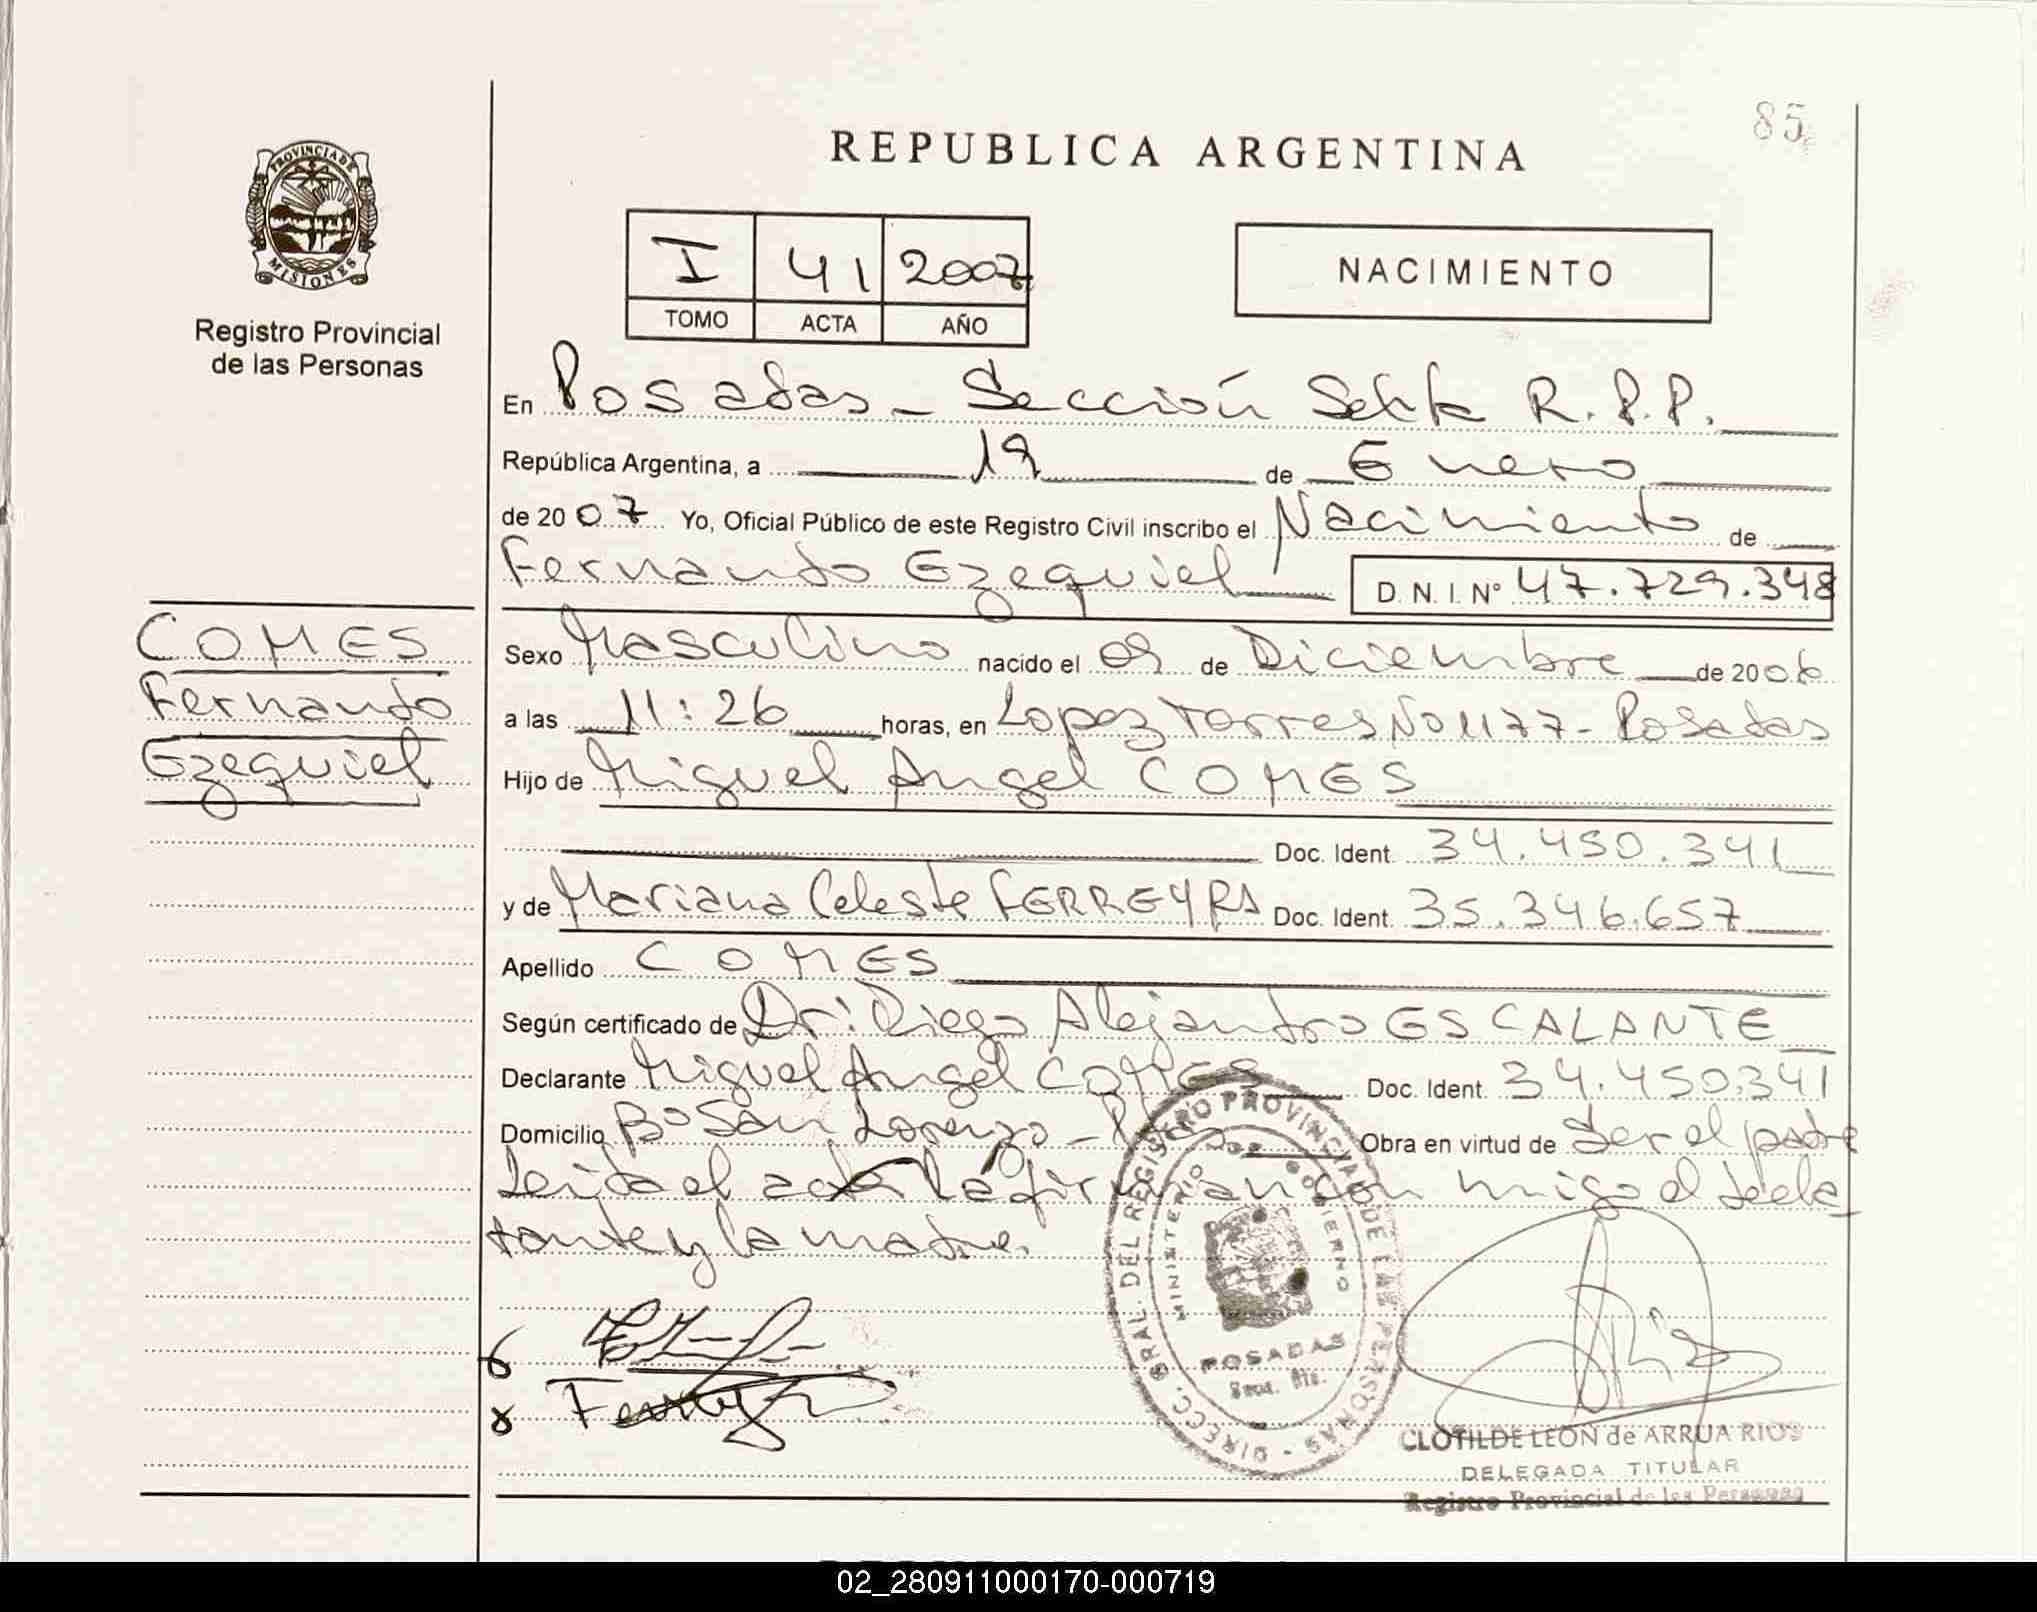 85
REPUBLICA ARGENTINA
PROVINCIA DE
MISIONES
Registro Provincial
de las Personas
I 41 2007
TOMO ACTA AÑO
NACIMIENTO
En Posadas - Sección Sexta R.P.P.
República Argentina, a 19 de Enero
de 2007 Yo, Oficial Público de este Registro Civil inscribo el Nacimiento de
Fernando Ezequiel D.N.I.Nº 47.729.348
COMES
Fernando
Ezequiel
Sexo Masculino nacido el 09 de Diciembre de 2006
a las 11:26 horas, en Lopez Torres No 1177 - Posadas
Hijo de Miguel Angel COMES
Doc. Ident. 34.450.341
y de Mariana Celeste FERREYRA Doc. Ident. 35.346.657
Apellido COMES
Según certificado de Dr: Diego Alejandro ESCALANTE
Declarante Miguel Angel COMES Doc. Ident. 34.450.341
Domicilio Bo San Lorenzo - Obra en virtud de Ser el padre
Leida el acta la firman con migo el decla
rante y la madre.
DIRECC. GRAL. DEL REGISTRO PROVINCIAL DE LAS PERSONAS
MINISTERIO DE GOBIERNO
POSADAS
CLOTILDE LEON de ARRUA RIOS
DELEGADA TITULAR
Registro Provincial de las Personas
02_280911000170-000719